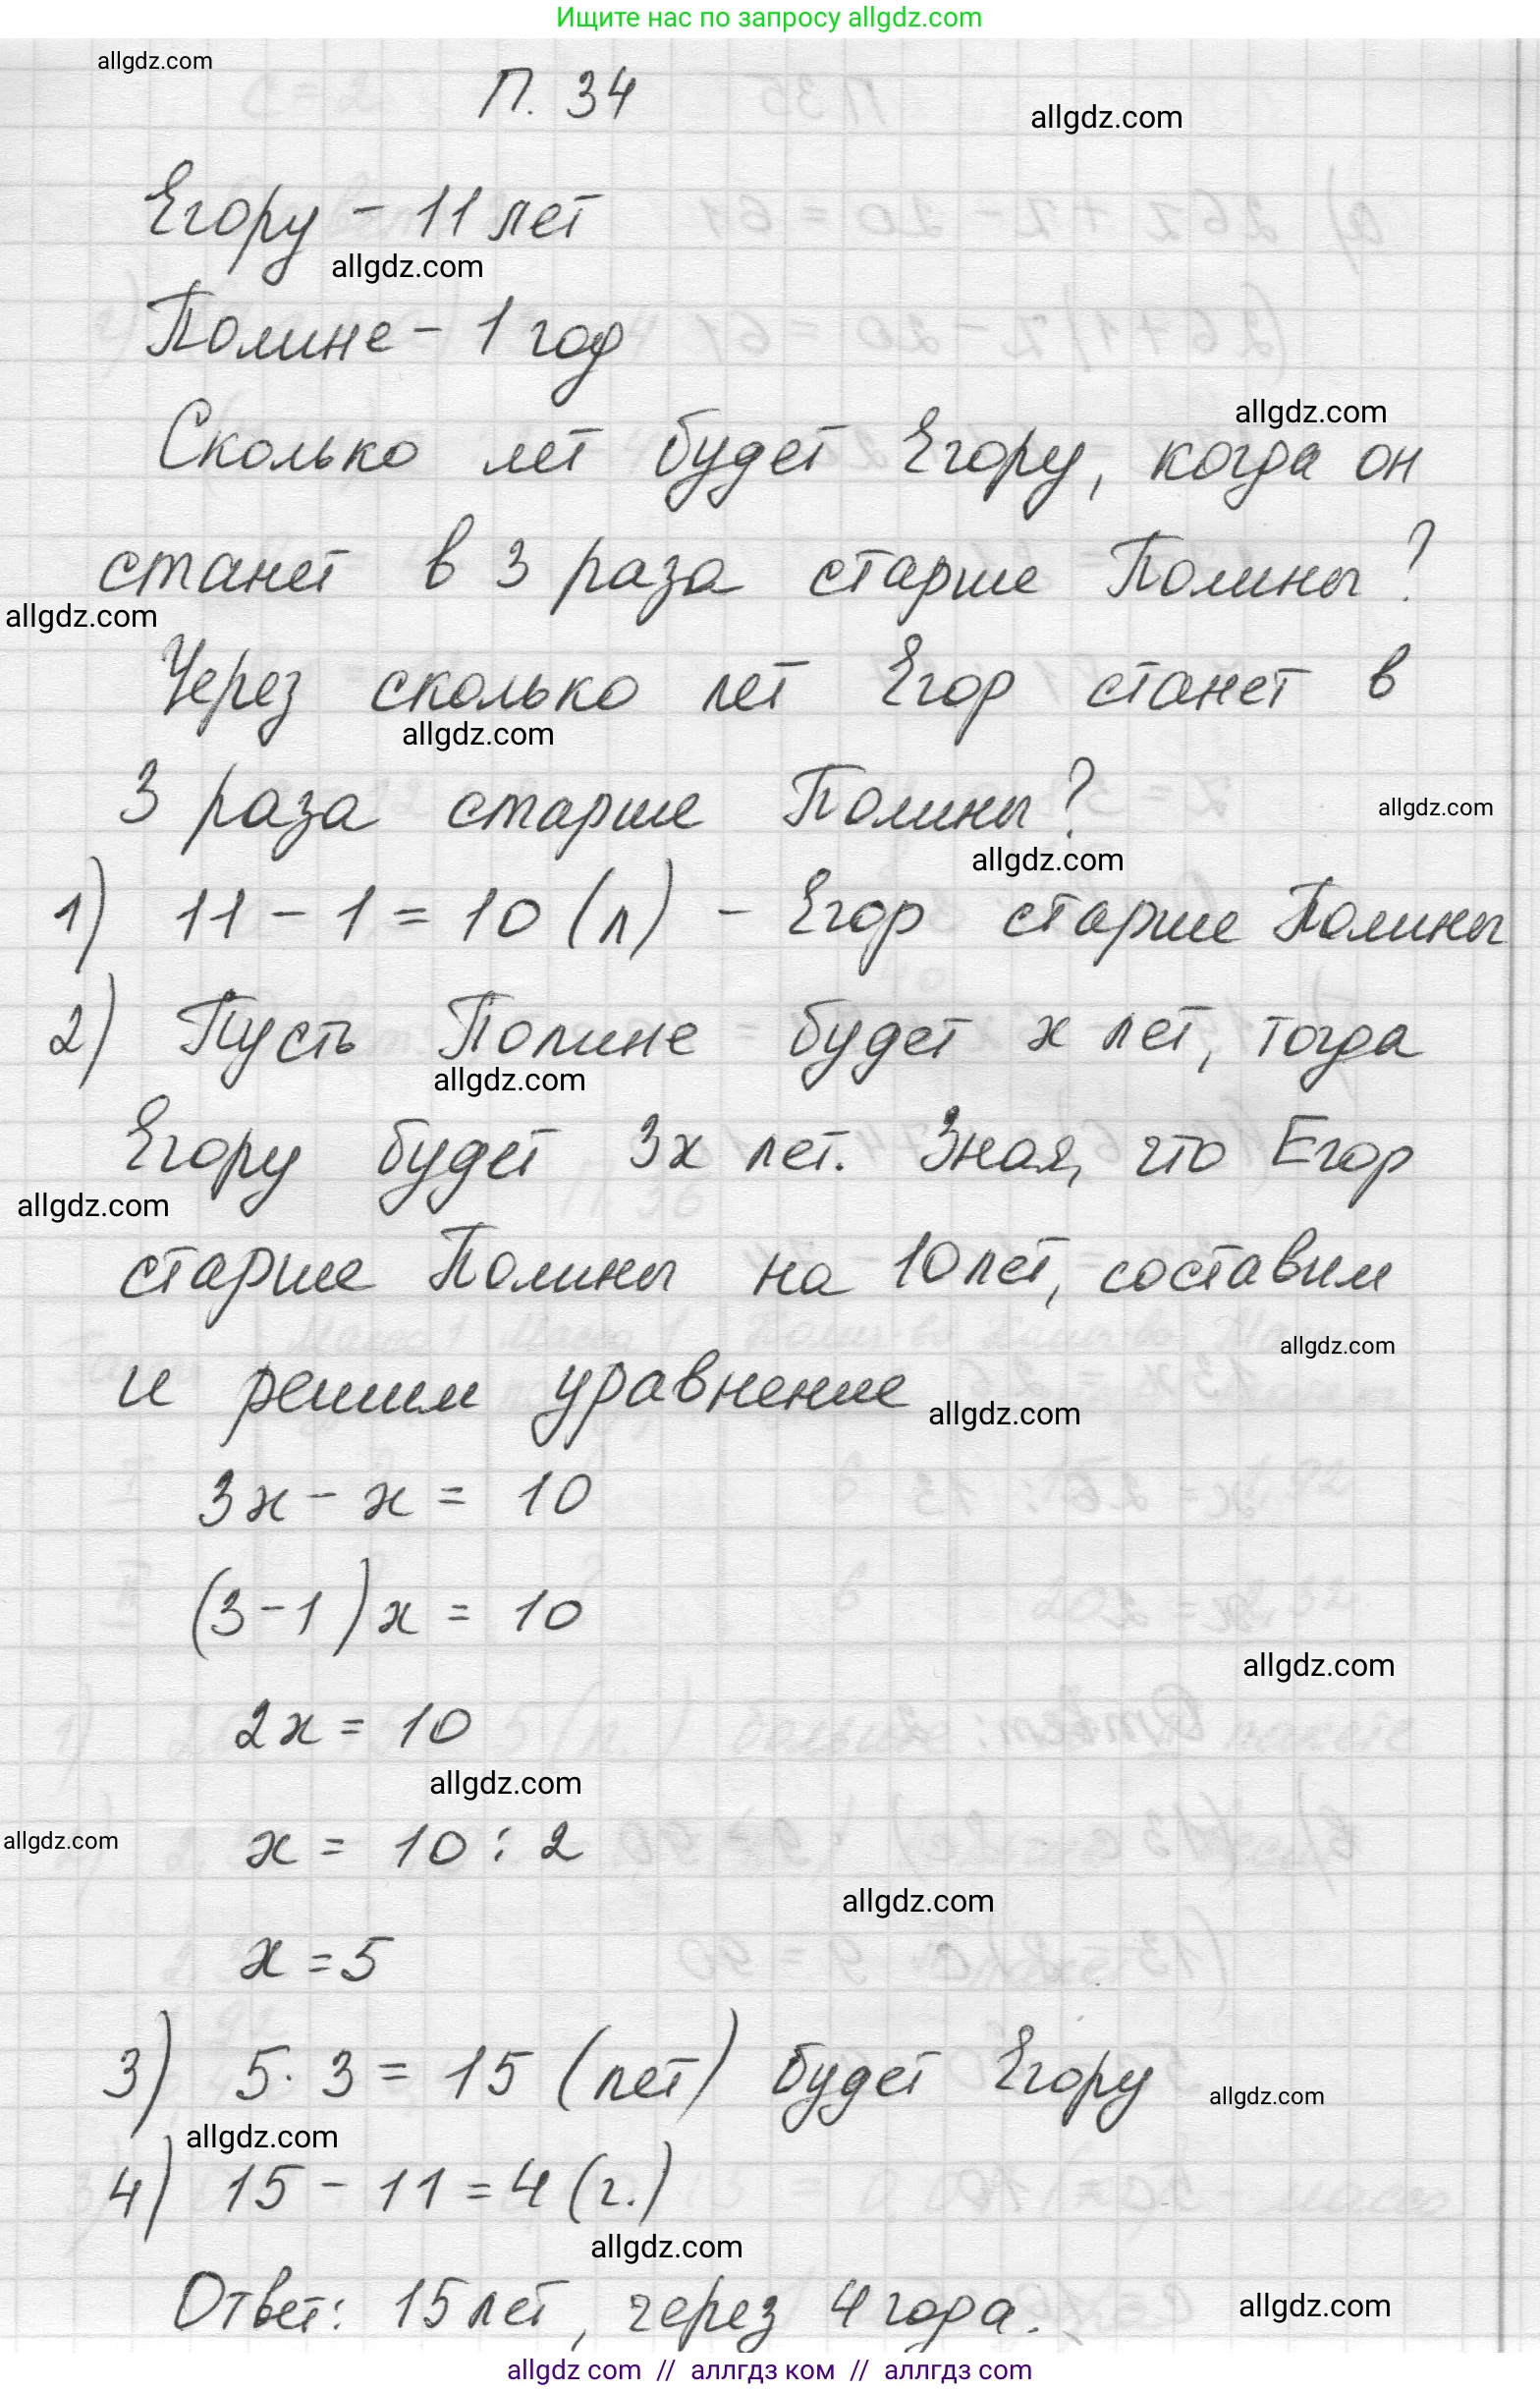 Ищите нас по запросу allgdz.com
allgdz.com
П. 34
allgdz.com
Егору - 11 лет
allgdz.com
Полине - 1 год
allgdz.com
Сколько лет будет Егору, когда он
станет в 3 раза старше Полины?
allgdz.com
Через сколько лет Егор станет в
allgdz.com
3 раза старше Полины?
allgdz.com
allgdz.com
1) 11 - 1 = 10 (л) - Егор старше Полины
2) Пусть Полине будет х лет, тогда
allgdz.com
Егору будет 3х лет. Зная, что Егор
allgdz.com
старше Полины на 10 лет, составим
allgdz.com
и решим уравнение
allgdz.com
3х - х = 10
(3 - 1)х = 10
allgdz.com
2х = 10
allgdz.com
allgdz.com
х = 10 : 2
allgdz.com
х = 5
3) 5 · 3 = 15 (лет) будет Егору
allgdz.com
allgdz.com
4) 15 - 11 = 4 (г.)
allgdz.com
Ответ: 15 лет, через 4 года.
allgdz.com
allgdz com // аллгдз ком // аллгдз com